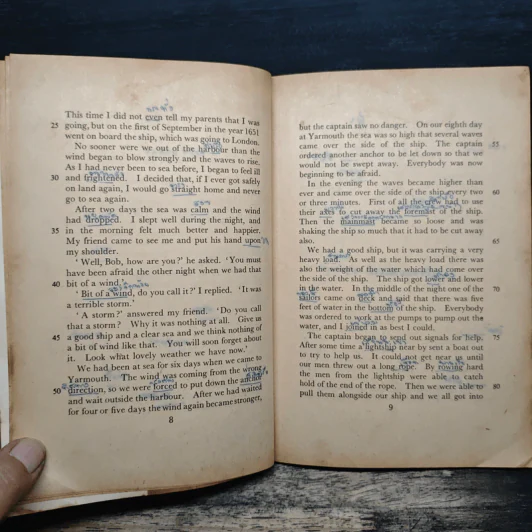 This time I did not even tell my parents that I was
25 going, but on the first of September in the year 1651
went on board the ship, which was going to London.
No sooner were we out of the harbour than the
wind began to blow strongly and the waves to rise.
As I had never been to sea before, I began to feel ill
30 and frightened. I decided that, if I ever got safely
on land again, I would go straight home and never
go to sea again.
After two days the sea was calm and the wind
had dropped. I slept well during the night, and
35 in the morning felt much better and happier.
My friend came to see me and put his hand upon
my shoulder.
'Well, Bob, how are you?' he asked. 'You must
have been afraid the other night when we had that
40 bit of a wind.'
'Bit of a wind, do you call it?' I replied. 'It was
a terrible storm.'
'A storm?' answered my friend. 'Do you call
that a storm? Why it was nothing at all. Give us
45 a good ship and a clear sea and we think nothing of
a bit of wind like that. You will soon forget about
it. Look what lovely weather we have now.'
We had been at sea for six days when we came to
Yarmouth. The wind was coming from the wrong
50 direction, so we were forced to put down the anchor
and wait outside the harbour. After we had waited
for four or five days the wind again became stronger,
8
but the captain saw no danger. On our eighth day
at Yarmouth the sea was so high that several waves
came over the side of the ship. The captain 55
ordered another anchor to be let down so that we
would not be swept away. Everybody was now
beginning to be afraid.
In the evening the waves became higher than
ever and came over the side of the ship every two 60
or three minutes. First of all the crew had to use
their axes to cut away the foremast of the ship.
Then the mainmast became so loose and was
shaking the ship so much that it had to be cut away
also. 65
We had a good ship, but it was carrying a very
heavy load. As well as the heavy load there was
also the weight of the water which had come over
the side of the ship. The ship got lower and lower
in the water. In the middle of the night one of the 70
sailors came on deck and said that there was five
feet of water in the bottom of the ship. Everybody
was ordered to work at the pumps to pump out the
water, and I joined in as best I could.
The captain began to send out signals for help. 75
After some time a lightship near by sent a boat out
to try to help us. It could not get near us until
our men threw out a long rope. By rowing hard
the men from the lightship were able to catch
hold of the end of the rope. Then we were able to 80
pull them alongside our ship and we all got into
9